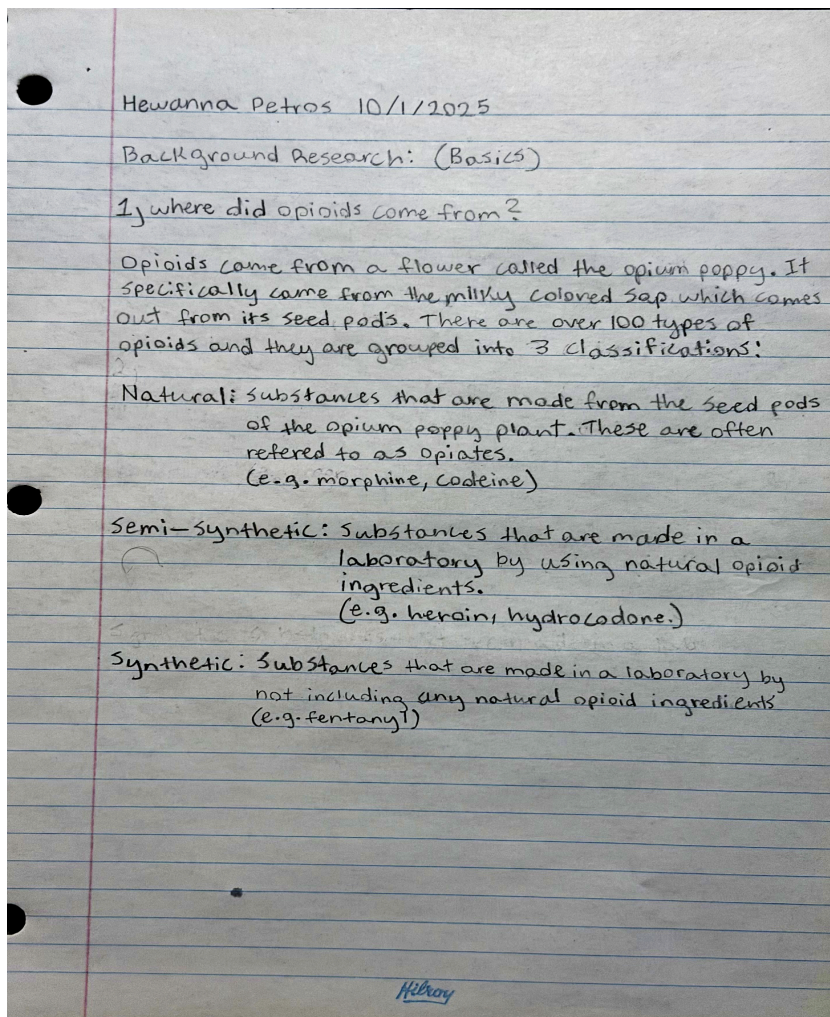 Hewanna Petros 10/1/2025
Background Research: (Basics)
1) where did opioids come from?
Opioids come from a flower called the opium poppy. It
specifically come from the milky colored sap which comes
out from its seed pods. There are over 100 types of
opioids and they are grouped into 3 classifications:
Natural: substances that are made from the seed pods
of the opium poppy plant. These are often
refered to as opiates.
(e.g. morphine, codeine)
Semi-synthetic: substances that are made in a
laboratory by using natural opioid
ingredients.
(e.g. heroin, hydrocodone.)
Synthetic: substances that are made in a laboratory by
not including any natural opioid ingredients
(e.g. fentanyl)
Hilroy